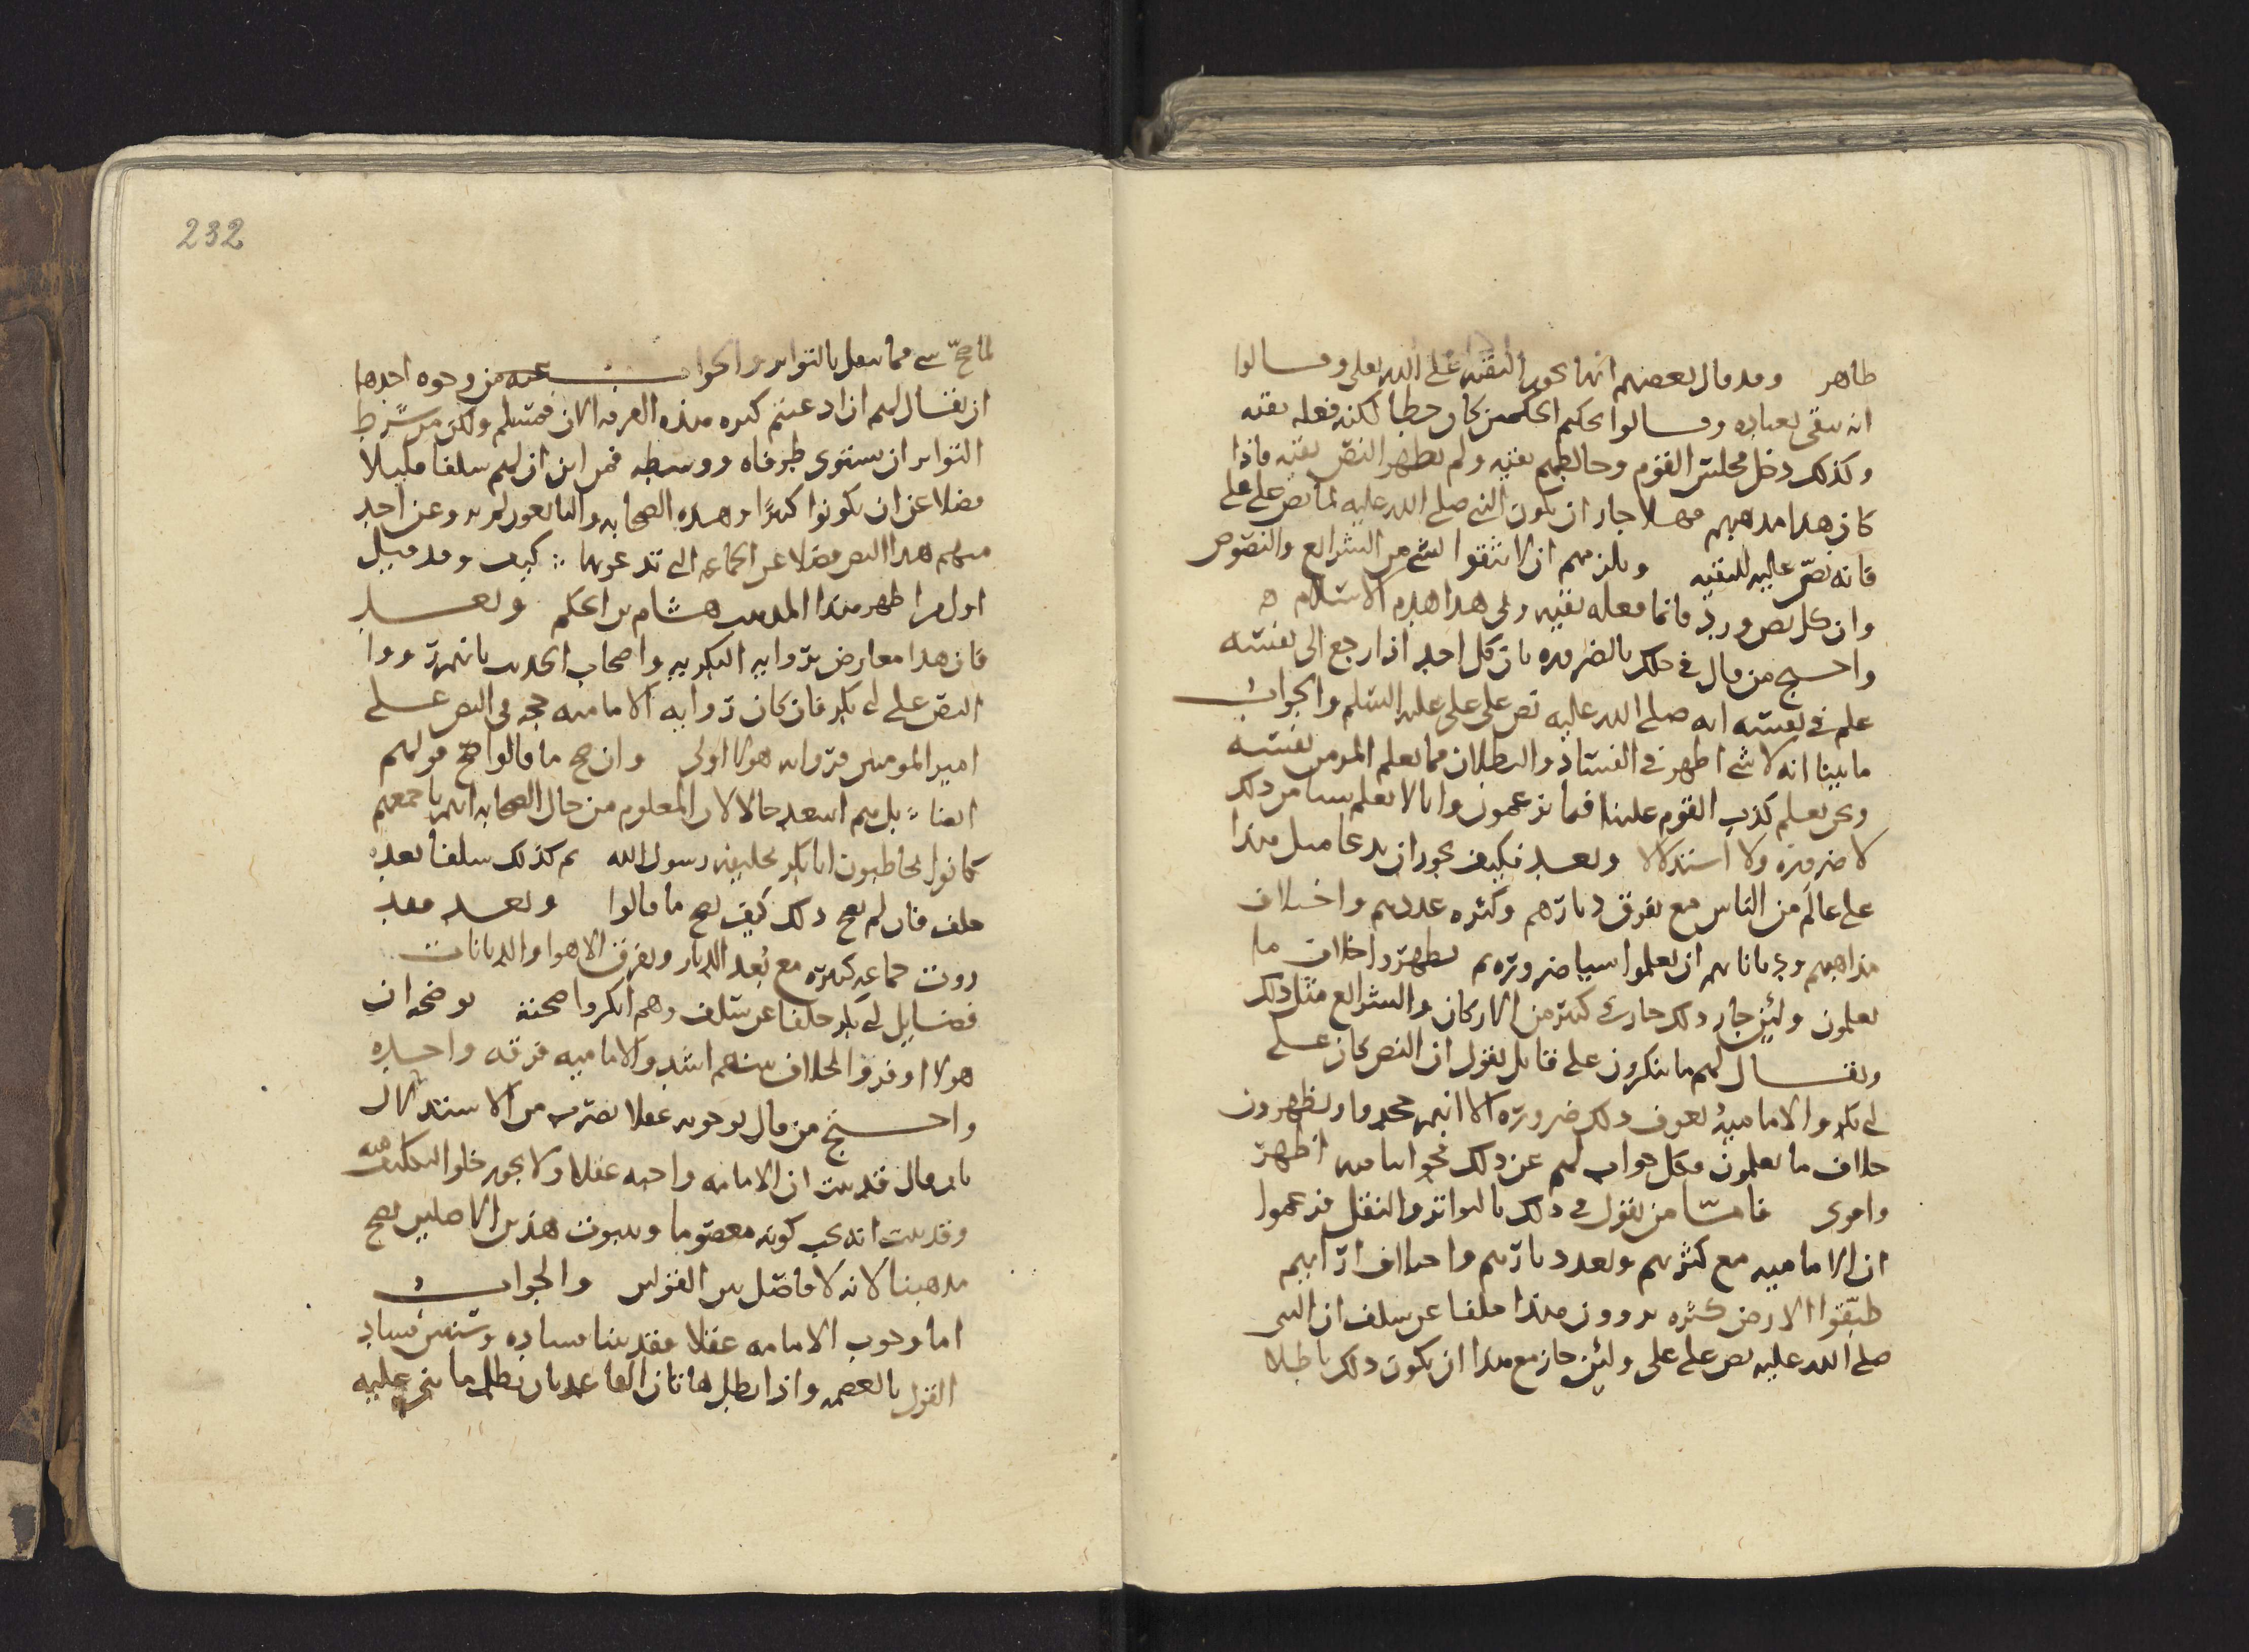 ظاهر وقد قال بعضهم انها يجوز التقيه على الله تعلى وقالوا
انه يتقي بعباده وقالوا يحكم الحكمين كان خطا لكنه فعله تقيه
وكذلك دخل مجلس القوم وخالطهم تقيه ولم يظهر النص تقيه فاذا
كان هذا مذهبهم فهلا جاز ان يكون النبي صلى الله عليه لما نص على علي
فانه نصّ عليه للتقيه ويلزمهم ان لا يثقوا بشي من الشرايع والنصوص
وان كل نص ورد فانما فعله تقيه وفي هذا هدم الاسلام
واحتج من قال في ذلك بالضروره بان كل احد اذا رجع الى نفسه
علم في نفسه انه صلى الله عليه نص على علي عليه السلم والجواب
ما بينا انه لا شي اظهر في الفساد والبطلان مما يعلم المرء من نفسه
ونحن نعلم كذب القوم علينا فيما يزعمون وانا لا نعلم شيا من ذلك
لا ضروره ولا استدلالا وبعد فكيف يجوز ان يدعا مثل هذا
على عالَم من الناس مع تفرق ديارهم وكثره عددهم واختلاف
مذاهبهم ودياناتهم ان يعلموا شيا ضروره ثم يظهروا خلاف ما
يعلمون ولئن جاز ذلك جاز في كثير من الاركان والشرايع مثل ذلك
ويقال لهم ما ينكرون على قايل يقول ان النص كان على
ابي بكر والاماميه تعرف ذلك ضروره الا انهم جحدوا ويظهرون
خلاف ما يعلمون فكل جواب لهم عن ذلك فجوابنا منه اظهر
واقوى فامّا من يقول في ذلك بالتواتر والنقل فزعموا
ان الاماميه مع كثرتهم وبعد ديارهم واختلاف ارايهم
طبّقوا الارض كثره يروون هذا خلفا عن سلف ان النبي
صلى الله عليه نص على علي ولئن جاز مع هذا ان يكون ذلك باطلا
232
لما صحّ شي مما ينقل بالتواتر والجواب عنه من وجوه احدها
ان يقال لهم ان ادعيتم كثره هذه الفرقه الان فمسلم ولكن من شرط
التواتر ان يستوى طرفاه ووسطه فمن اين ان لهم سلفا قليلا
فضلا عن ان يكونوا كثيرًا وهذه الصحابه والتابعون لم يرو عن احد
منهم هذا النص فضلا عن الجماعه التي تدعونها كيف وقد قيل
اول من اظهر هذا المذهب هشام بن الحكم وبعد
فان هذا معارض بروايه البكريه واصحاب الحديث بانهم رووا
النص على ابي بكر فان كان روايه الاماميه حجه في النص على
امير المومنين فروايه هولا اولى وان صح ما قالوا صحّ قولهم
ايضا بل هم اسعد حالا لان المعلوم من حال الصحابه انهم باجمعهم
كانوا يخاطبون ابا بكر بخليفه رسول الله ثم كذلك سلفا بعد
خلف فان لم يصح ذلك كيف يصح ما قالوا وبعد فقد
روت جماعه كثيره مع بُعد الديار وتفرق الاهوا والديانات
فضايل ابي بكر خلفا عن سلف وهم انكروا صحته يوضحه ان
هولا اوفر والخلاف بينهم اشد والاماميه فرقه واحده
واحتج من قال بوجوبه عقلا بضرب من الاستدلال
بان قال قد ثبت ان الامامه واجبه عقلا ولا يجوز خلو التكليف منه
وقد ثبت انه يجب كونه معصوما وبثبوت هذين الاصلين يصح
مذهبنا لانه لا فاصل بين القولين والجواب
اما وجوب الامامه عقلا فقد بينا فساده وسنبين فساد
القول بالعصمه واذا بطل هاتان القاعدتان بطل ما بني عليه